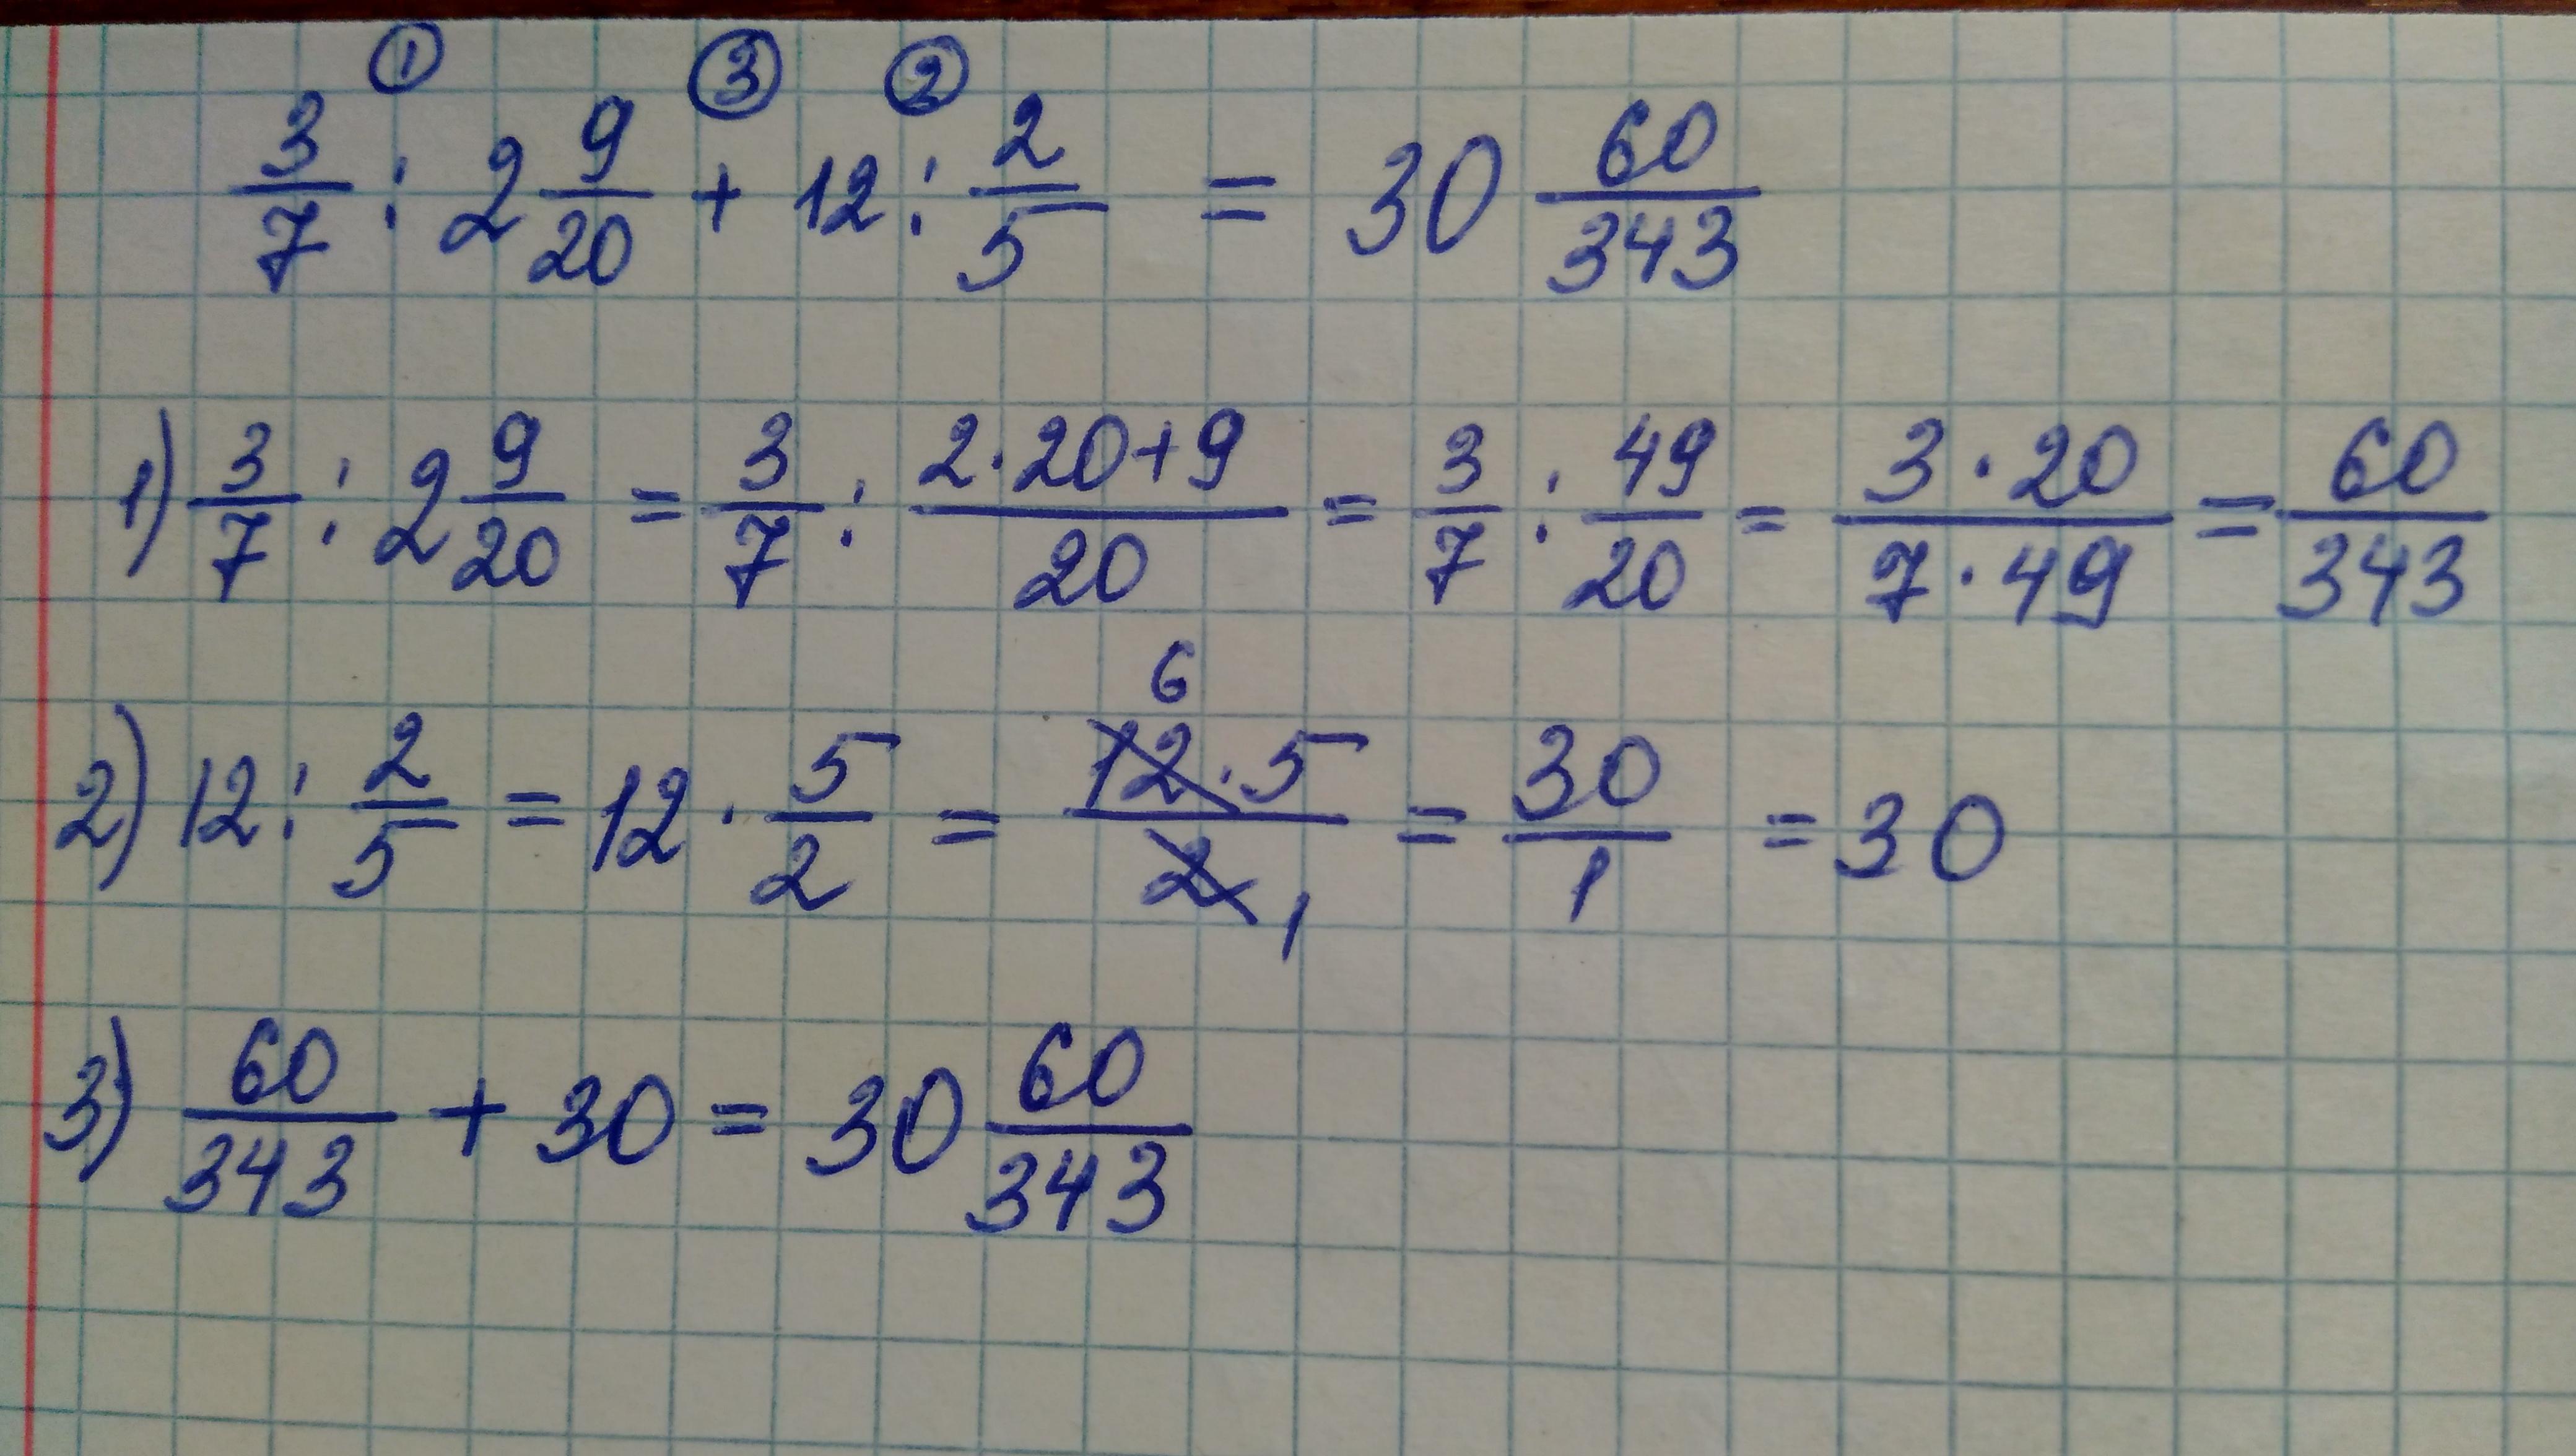 ① ③ ②
3/7 : 2 9/20 + 12 : 2/5 = 30 60/343
1) 3/7 : 2 9/20 = 3/7 : (2·20+9)/20 = 3/7 : 49/20 = (3·20)/(7·49) = 60/343
2) 12 : 2/5 = 12 · 5/2 = (12·5)/2 6 1 = 30/1 = 30
3) 60/343 + 30 = 30 60/343